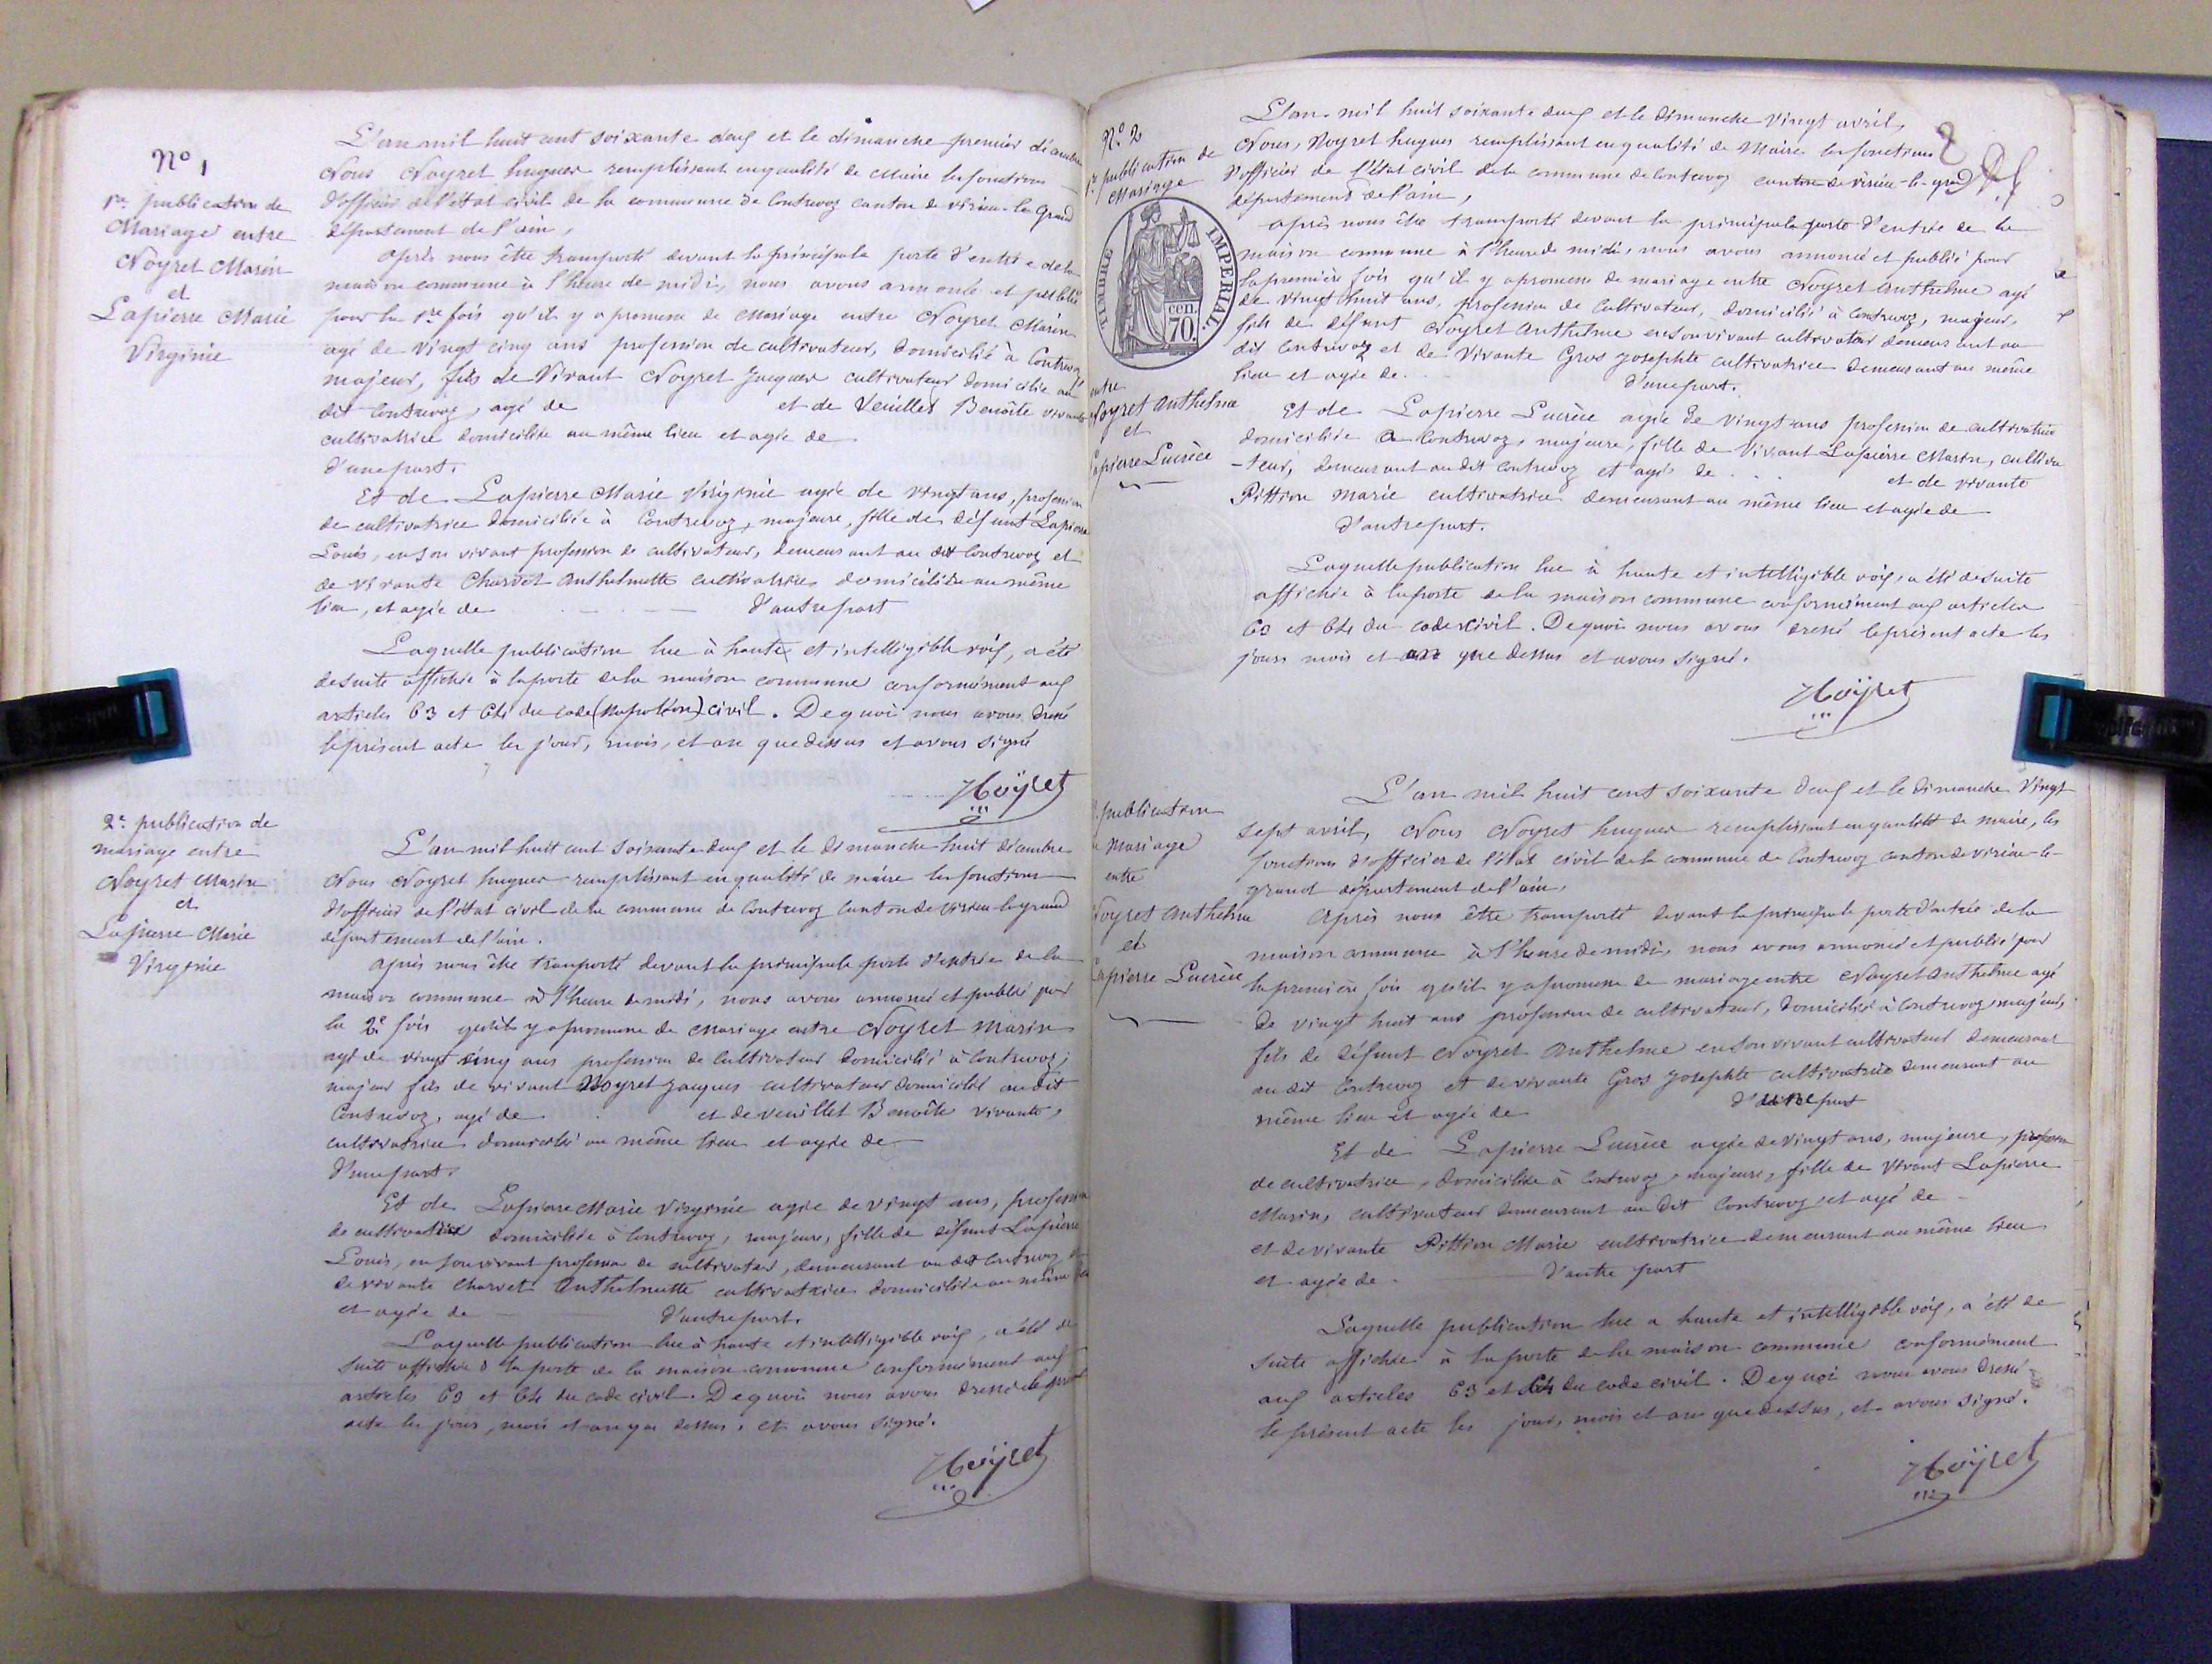 N° 1
1re publication de
Mariage entre
Noyret Marin
et
Lapierre Marie
Virginie
L'an mil huit cent soixante deux et le dimanche premier décembre
Nous Noyret hugues remplissant en qualité de Maire les fonctions
d'officier de l'état civil de la commune de Contrevoz canton de Virieu-le-Grand
département de l'ain,
après nous être transporté devant la principale porte d'entrée de la
maison commune à l'heure de midi, nous avons annoncé et publié
pour la 1re fois qu'il y a promesse de Mariage entre Noyret Marin
agé de Vingt cinq ans profession de cultivateur, domicilié à Contrevoz
majeur, fils de Vivant Noyret Jacques cultivateur domicilié au
dit Contrevoz, agé de et de Veuillet Benoîte vivante
cultivatrice domiciliée au même lieu et agée de
d'une part.
Et de Lapierre Marie Virginie agée de vingt ans, profession
de cultivatrice domiciliée à Contrevoz, majeure, fille de défunt Lapierre
Louis, en son vivant profession de cultivateur, demeurant au dit Contrevoz et
de vivante Charvet Anthelmette cultivatrice domiciliée au même
lieu, et agée de d'autre part
Laquelle publication lue à haute et intelligible voix, a été
de suite affichée à la porte de la maison commune conformément aux
articles 63 et 64 du code (Napoléon) civil. De quoi nous avons dressé
le présent acte les jour, mois, et an que dessus et avons signé
Noÿret
2e publication de
mariage entre
Noyret Marin
et
Lapierre Marie
Virginie
L'an mil huit cent soixante deux et le dimanche huit décembre
Nous Noyret hugues remplissant en qualité de maire les fonctions
d'officier de l'état civil de la commune de Contrevoz canton de Virieu-le grand
département de l'ain.
après nous être transporté devant la principale porte d'entrée de la
maison commune à l'heure de midi, nous avons annoncé et publié pour
la 2e fois qu'il y a promesse de Mariage entre Noyret Marin
agé de vingt cinq ans profession de cultivateur domicilié à Contrevoz,
majeur fils de vivant Noyret Jacques cultivateur domicilié au dit
Contrevoz, agé de et de veuillet Benoîte vivante,
cultivatrice domicilié au même lieu et agée de
d'une part.
Et de Lapierre Marie Virginie agée de vingt ans, profession
de cultivatrice domiciliée à Contrevoz, majeure, fille de défunt Lapierre
Louis, en son vivant profession de cultivateur, demeurant au dit Contrevoz et
de vivante Charvet Anthelmette cultivatrice domiciliée au même lieu
et agée de d'autre part.
Laquelle publication lue à haute et intelligible voix, a été de
suite affichée à la porte de la maison commune conformément aux
articles 63 et 64 du code civil. De quoi nous avons dressé le présent
acte les jour, mois et an que dessus, et avons signé.
Noÿret
N° 2
1re publication de
Mariage
TIMBRE IMPERIAL
cen.
70.
entre
Noyret Anthelme
et
Lapierre Lucrèce
L'an mil huit soixante deux et le Dimanche Vingt avril,
Nous, Noyret hugues remplissant en qualité de Maire les fonctions
d'officier de l'état civil de la commune de Contrevoz canton de virieu-le-grand
département de l'ain,
2
après nous être transporté devant la principale porte d'entrée de la
maison commune à l'heure de midi, nous avons annoncé et publié pour
la première fois qu'il y a promesse de mariage entre Noyret Anthelme agé
de vingt huit ans, profession de Cultivateur, domicilié à Contrevoz, majeur,
fils de défunt Noyret Anthelme en son vivant cultivateur demeurant au
dit Contrevoz et de Vivante Gros Josephte cultivatrice demeurant au même
lieu et agée de d'une part.
Et de Lapierre Lucrèce agée de vingt ans profession de cultivatrice
domiciliée à Contrevoz, majeure, fille de Vivant Lapierre Marin, cultiva
-teur, demeurant au dit Contrevoz et agé de et de vivante
Pittion Marie cultivatrice demeurant au même lieu et agée de
d'autre part.
Laquelle publication lue à haute et intelligible voix, a été de suite
affichée à la porte de la maison commune conformément aux articles
63 et 64 du code civil. De quoi nous avons dressé le présent acte les
jours mois et an que dessus et avons signé.
Noÿret
publication
de Mariage
entre
Noyret Anthelme
et
Lapierre Lucrèce
L'an mil huit cent soixante deux et le Dimanche Vingt
sept avril, Nous Noyret hugues remplissant en qualité de maire, les
fonctions d'officier de l'état civil de la commune de Contrevoz canton de virieu-le-
grand département de l'ain,
Après nous être transporté devant la principale porte d'entrée de la
maison commune à l'heure de midi, nous avons annoncé et publié pour
la première fois qu'il y a promesse de mariage entre Noyret Anthelme agé
de vingt huit ans profession de cultivateur, domicilié à Contrevoz, majeur,
fils de défunt Noyret Anthelme en son vivant cultivateur demeurant
au dit Contrevoz et de vivante Gros Josephte cultivatrice demeurant au
même lieu et agée de d'une part
Et de Lapierre Lucrèce agée de vingt ans, majeure, profession
de cultivatrice, domiciliée à Contrevoz, majeure, fille de Vivant Lapierre
Marin, cultivateur demeurant au dit Contrevoz, et agé de
et de vivante Pittion Marie cultivatrice demeurant au même lieu
et agée de d'autre part
Laquelle publication lue a haute et intelligible voix, a été de
suite affichée à la porte de la maison commune conformément
aux articles 63 et 64 du code civil. De quoi nous avons dressé
le présent acte les jour, mois et an que dessus, et avons signé.
Noÿret